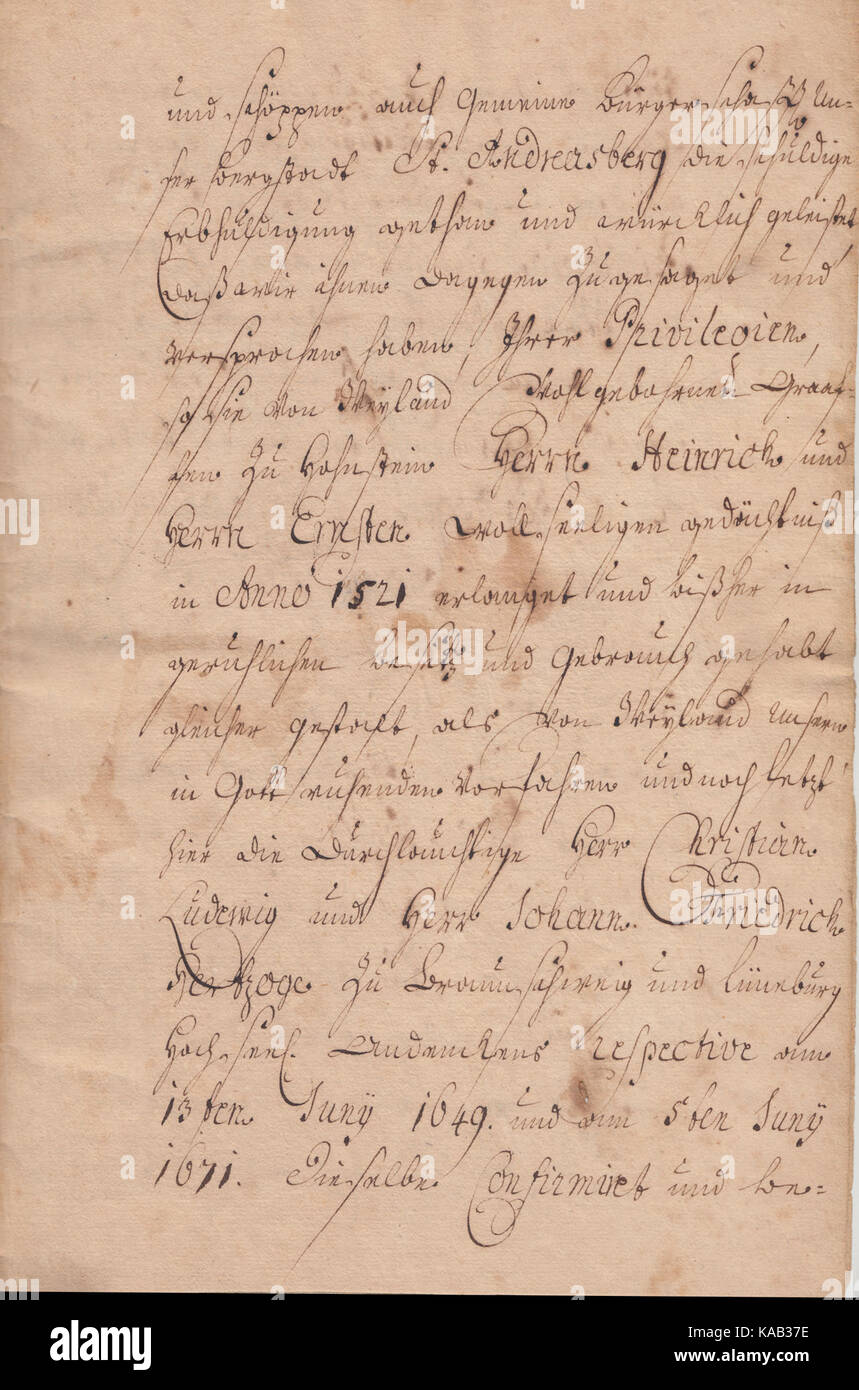 und schöppen auch Gemeine Bürgerschafft Un-
ser Bergstadt St. Andreasberg die schuldige
Erbhuldigung gethan und würcklich geleistet,
daß wir ihnen dagegen zugesaget und
versprochen haben, Ihrer Privilegien,
so sie von Weyland Wohlgebohrnen Graaf-
fen zu Hohnstein Herrn Heinrich und
Herrn Ernsten woll seeligen gedächtniß
in Anno 1521 erlanget und bißher in
geruhlichen besitz und Gebrauch gehabt
gleicher gestalt, als von Weyland Unsern
in Gott ruhenden Vorfahren und noch letzt
hier die Durchlauchtige Herr Christian
Ludewig und Herr Johann Friedrich
Hertzoge zu Braunschweig und Lüneburg
Hoch seel. Andenckens respective am
13ten Juny 1649. und am 5ten Juny
1671. Dieselbe Confirmiret und be=
alamy
Image ID: KAB37E
www.alamy.com